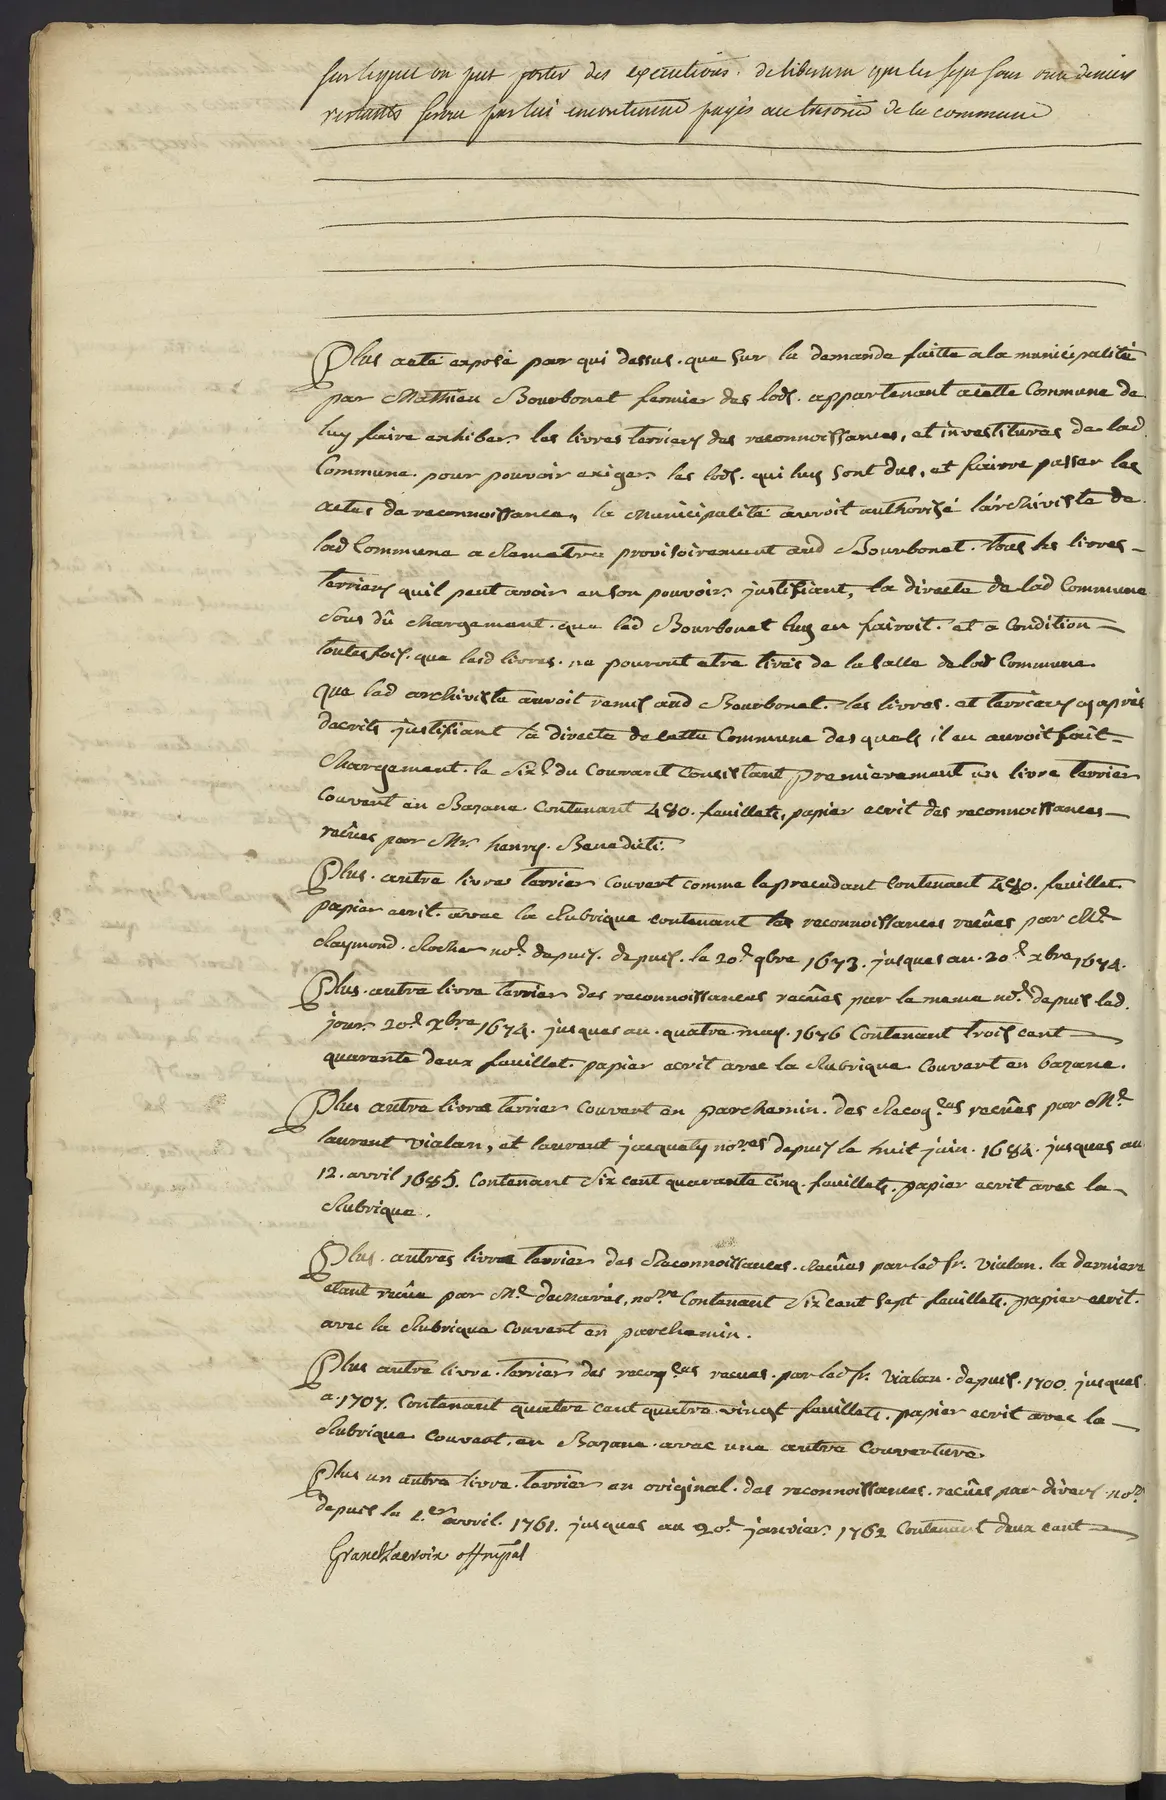 sur lequel on put porter des executions. deliberera que les sept sous onze deniers
restants seront par lui incontinent payés au tresorier de la commune
Plus a eté exposé par qui dessus. que sur la demande faitte a la municipalité
par Mathieu Bourbonet fermier des lods. appartenant a cette Commune de
luy faire exhiber les livres terriers des reconnoissances, et investitures de lad
Commune. pour pouvoir exiger les lods. qui luy sont dus, et fairre passer les
actes de reconnoissance, la Municipalité auroit authorisé l'archiviste de
lad Commune a Remettre provisoirement aud Bourbonet. tous les livres
terriers quil peut avoir en son pouvoir justifiant, la directe de lad Commune
sous dû chargement. que led Bourbonet luy en fairoit. et a Condition
toutes fois. que lesd livres. ne pourront etre tirés de la salle de lad Commune
que lad archiviste auroit remis aud Bourbonet. les livres. et terriers cy après
decrits justifiant la directe de cette Commune des quels il en auroit fait
Chargement. le six.e du Courant Consistant premierement un livre terrier
Couvert en Bazane Contenant 480. feuillets, papier ecrit des reconnoissances
reçues par Mr. henry. Benedicti.
Plus. autre livre terrier Couvert comme le precedant Contenant 480. feuillet.
papier ecrit. avec la Rubrique contenant les reconnoissances reçûes par Me
Raymond. Rocher no.e depuis. depuis. le 20.e 9bre 1673. jusques au. 20.e xbre 1674.
Plus. autre livre terrier des reconnoissances reçûes par le meme no.e depuis led.
jour. 20.e xbre 1674. jusques au. quatre may. 1676 Contenant trois cent
quarante deux feuillet. papier ecrit avec la Rubrique Couvert en bazane.
Plus autre livre terrier Couvert en parchemin. des Recog.ces reçûes par Me
laurent vialan, et laurent jacquety no.res depuis le huit juin. 1684. jusques au
12. avril 1685. Contenant six cent quarante cinq. feuillets. papier ecrit avec la
Rubrique.
Plus. autres livre terrier des Reconnoissances. Recûes par led sr. vialan. la derniere
etant reçûe par Me. no.re Contenant six cent sept feuillets. papier ecrit.
avec la Rubrique Couvert en parchemin.
Plus autre livre. terrier des recog.ces recues. par led sr. vialan. depuis. 1700. jusques
a. 1707. Contenant quatre cent quatre vingt feuillets. papier ecrit avec la
Rubrique Couvert. en Bazane. avec une autre Couverture
Plus un autre livre. terrier en original. des reconnoissances. reçûes par divers. no.re
depuis le 1.er avril. 1761. jusques au 20.e janvier. 1762 Contenant deux cent